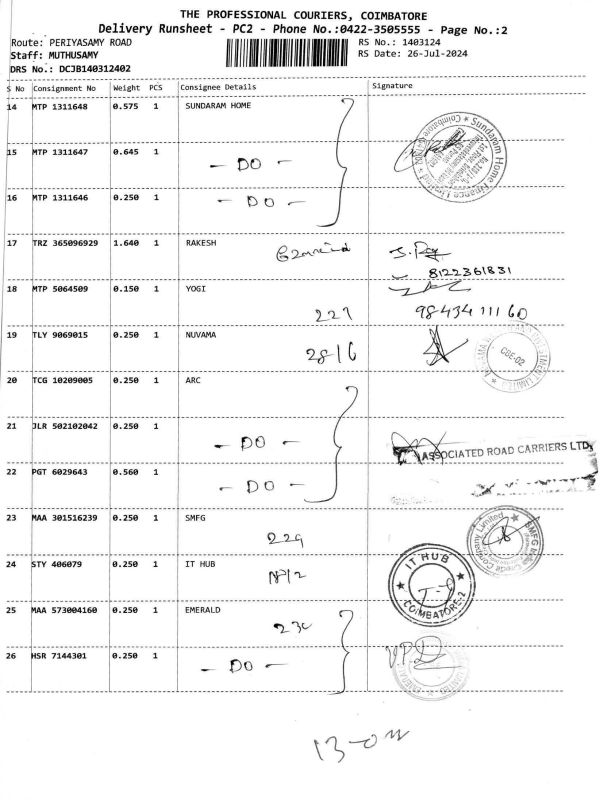 THE PROFESSIONAL COURIERS, COIMBATORE
Delivery Runsheet - PC2 - Phone No.:0422-3505555 - Page No.:2
Route: PERIYASAMY ROAD
RS No.: 1403124
Staff: MUTHUSAMY
RS Date: 26-Jul-2024
DRS No.: DCJB140312402
S No Consignment No Weight PCS Consignee Details Signature
14 MTP 1311648 0.575 1 SUNDARAM HOME
Sundaram Home Finance Limited * Coimbatore
15 MTP 1311647 0.645 1
- DO -
16 MTP 1311646 0.250 1
- DO -
17 TRZ 365096929 1.640 1 RAKESH
8122361831
18 MTP 5064509 0.150 1 YOGI
227 98434 111 60
19 TLY 9069015 0.250 1 NUVAMA
28/6
CBE-02
20 TCG 10209005 0.250 1 ARC
21 JLR 502102042 0.250 1
- DO -
ASSOCIATED ROAD CARRIERS LTD.
22 PGT 6029643 0.560 1
- DO -
23 MAA 301516239 0.250 1 SMFG
229
SMFG India Credit Company Limited
24 STY 406079 0.250 1 IT HUB
IT HUB
COIMBATORE-2
25 MAA 573004160 0.250 1 EMERALD
26 HSR 7144301 0.250 1
- DO -
V.P.D